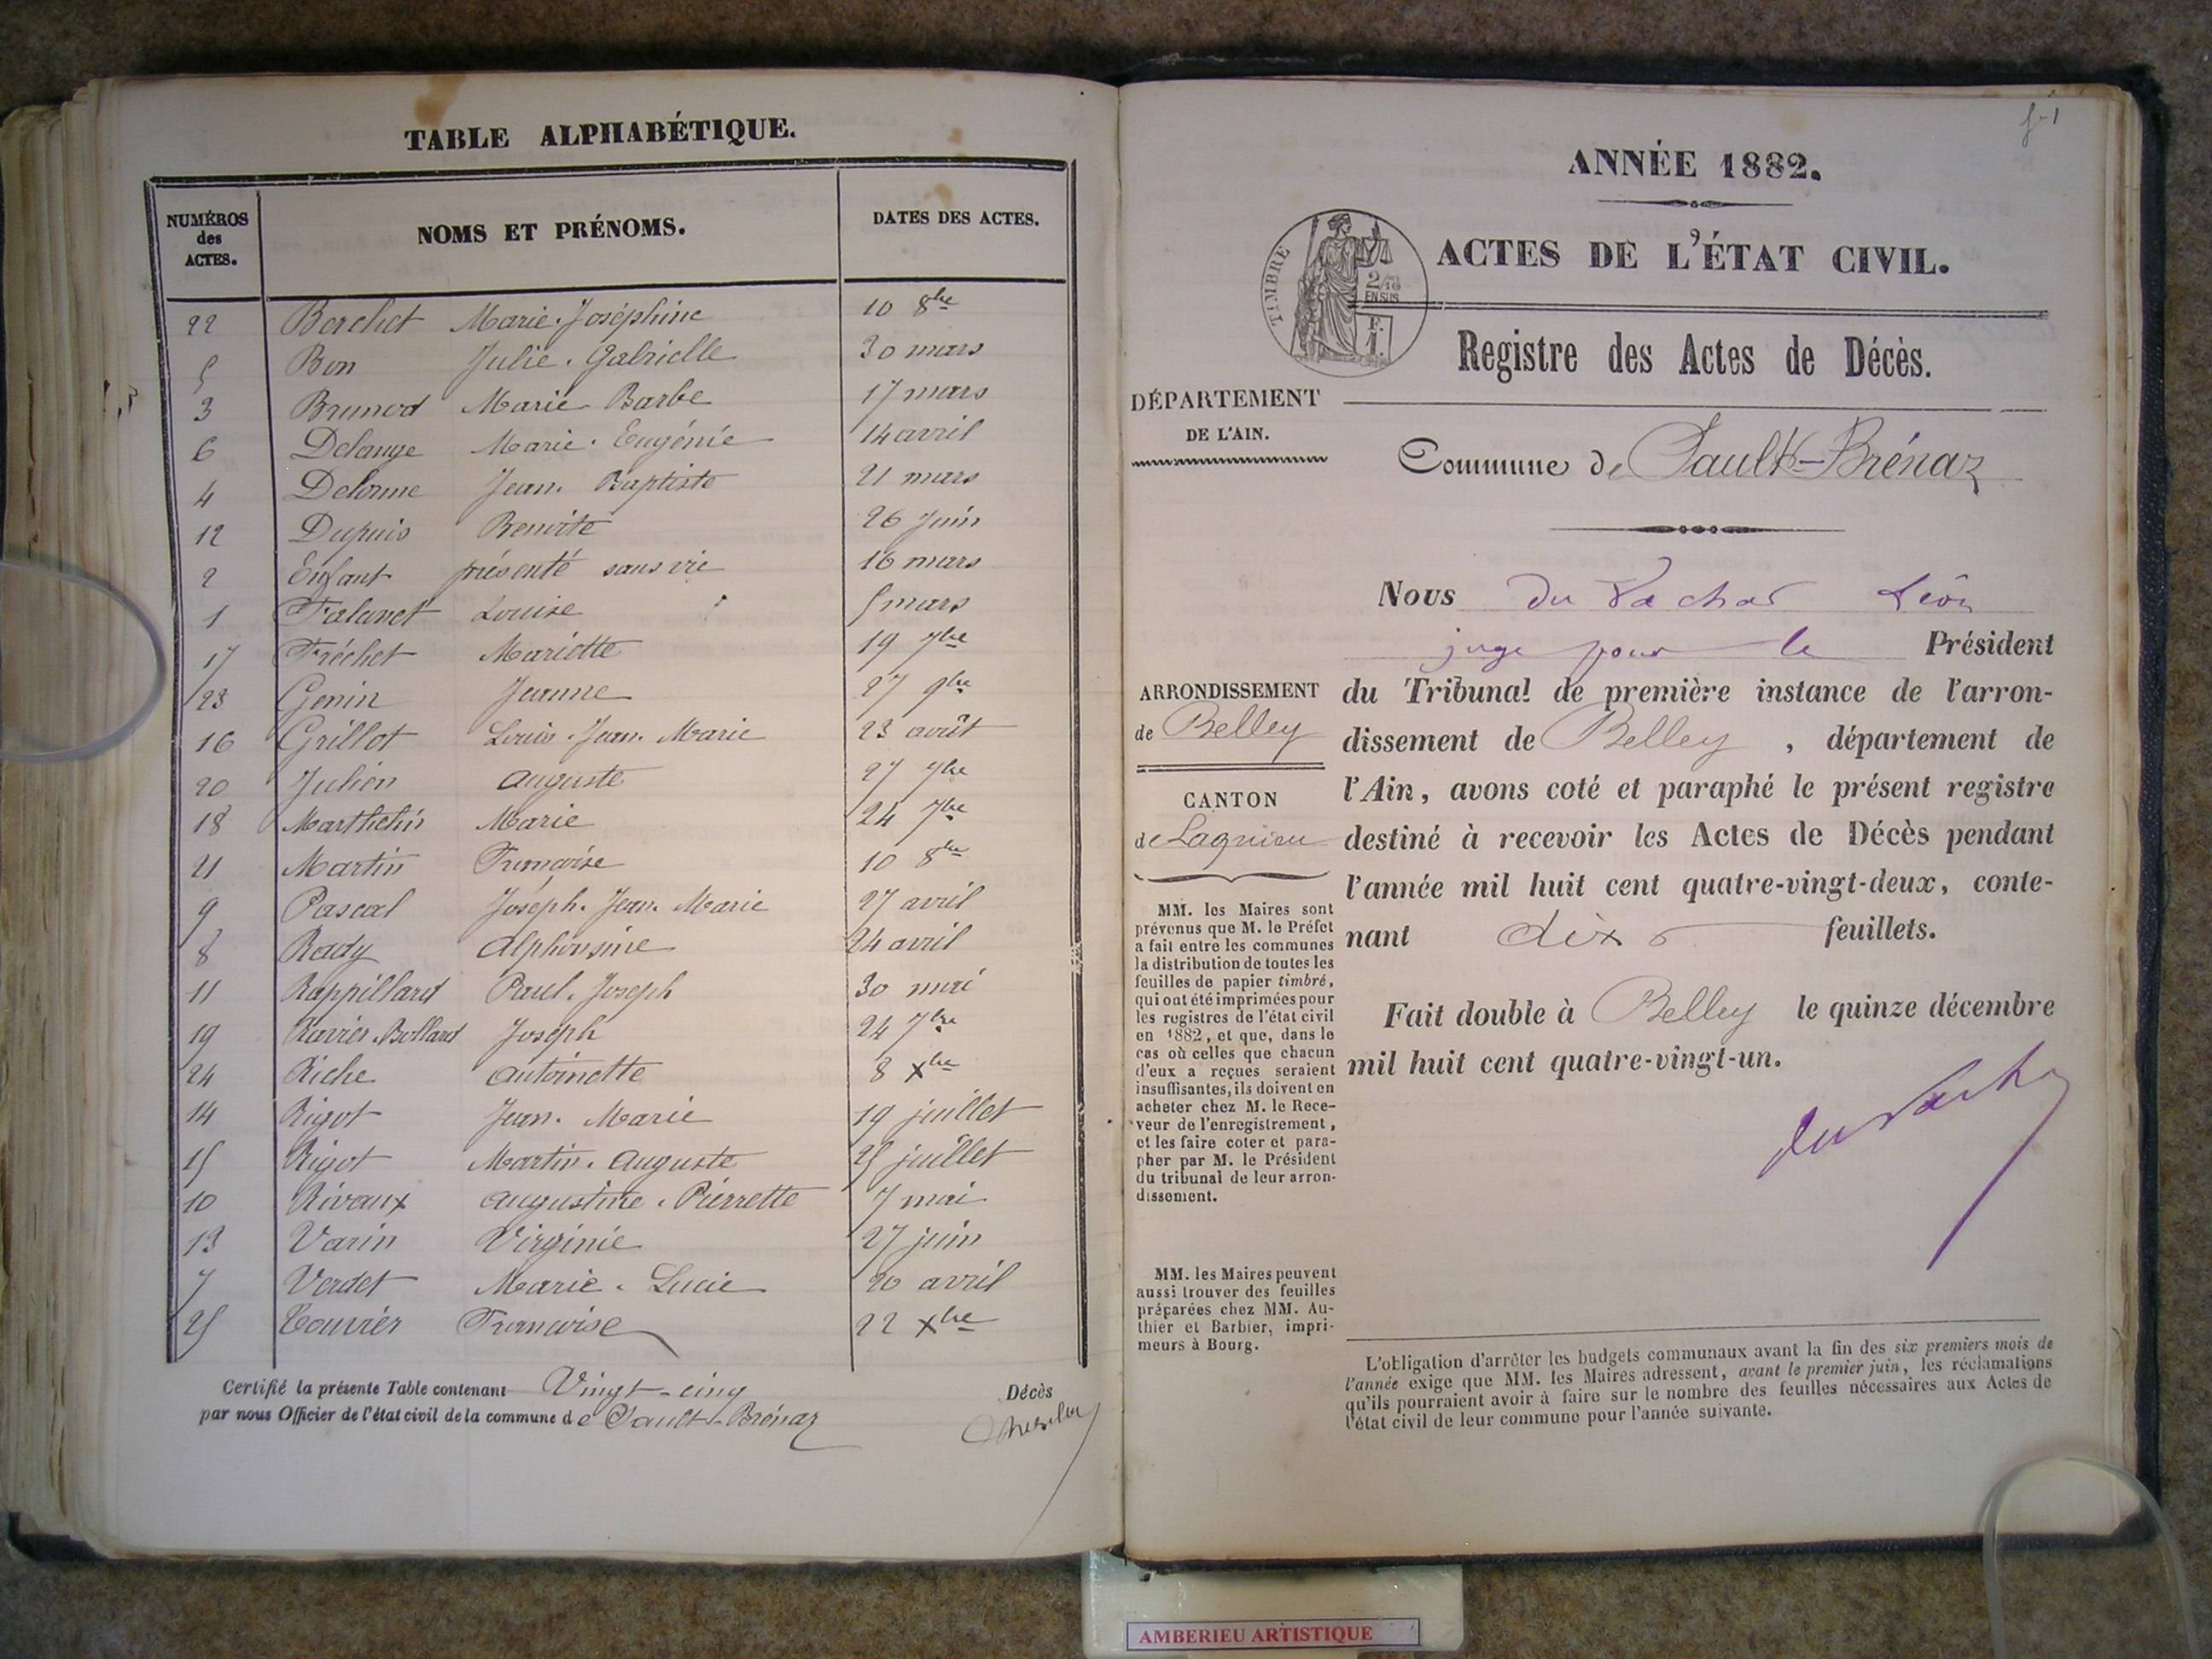 TABLE ALPHABÉTIQUE.
NUMÉROS des ACTES. NOMS ET PRÉNOMS. DATES DES ACTES.
22 Berchet Marie-Joséphine 10 8bre
5 Bon Julie-Gabrielle 30 mars
3 Brunod Marie Barbe 17 mars
6 Delange Marie-Eugénie 14 avril
4 Delorme Jean-Baptiste 21 mars
12 Dupuis Benoite 26 juin
2 Enfant présenté sans vie 16 mars
1 Falavet Louise 5 mars
17 Fréchet Mariette 19 7bre
23 Genin Jeanne 27 9bre
16 Grillot Louis-Jean-Marie 23 août
20 Julien Auguste 27 7bre
18 Marthelin Marie 24 7bre
21 Martin Françoise 10 8bre
9 Pascal Joseph-Jean-Marie 27 avril
8 Rady Alphonsine 24 avril
11 Rappillard Paul-Joseph 30 mai
19 Ravier-Bollard Joseph 24 7bre
24 Riche Antoinette 8 Xbre
14 Rigot Jean-Marie 19 juillet
15 Rigot Martin-Auguste 25 juillet
10 Rivaux Augustine-Pierrette 7 mai
13 Varin Virginie 27 juin
7 Verdet Marie-Lucie 20 avril
25 Bouvier Françoise 22 Xbre
Certifié la présente Table contenant Vingt-cinq Décès
par nous Officier de l'état civil de la commune de Sault-Brénaz
f-1
ANNÉE 1882.
ACTES DE L'ÉTAT CIVIL.
TIMBRE
2/10
EN SUS
F.
1.
Registre des Actes de Décès.
DÉPARTEMENT
DE L'AIN.
Commune de Sault-Brénaz
Nous du Vachat Léon
juge pour le Président
ARRONDISSEMENT
de Belley
du Tribunal de première instance de l'arron-
dissement de Belley, département de
l'Ain, avons coté et paraphé le présent registre
destiné à recevoir les Actes de Décès pendant
l'année mil huit cent quatre-vingt-deux, conte-
nant dix feuillets.
CANTON
de Lagnieu
Fait double à Belley le quinze décembre
mil huit cent quatre-vingt-un.
du Vachat
MM. les Maires sont
prévenus que M. le Préfet
a fait entre les communes
la distribution de toutes les
feuilles de papier timbré,
qui ont été imprimées pour
les registres de l'état civil
en 1882, et que, dans le
cas où celles que chacun
d'eux a reçues seraient
insuffisantes, ils doivent en
acheter chez M. le Rece-
veur de l'enregistrement,
et les faire coter et para-
pher par M. le Président
du tribunal de leur arron-
dissement.
MM. les Maires peuvent
aussi trouver des feuilles
préparées chez MM. Au-
thier et Barbier, impri-
meurs à Bourg.
L'obligation d'arrêter les budgets communaux avant la fin des six premiers mois de
l'année exige que MM. les Maires adressent, avant le premier juin, les réclamations
qu'ils pourraient avoir à faire sur le nombre des feuilles nécessaires aux Actes de
l'état civil de leur commune pour l'année suivante.
AMBERIEU ARTISTIQUE